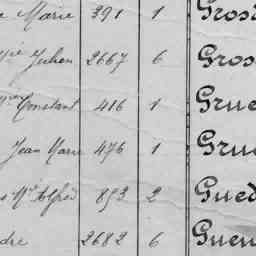 Marie 391 1 Gros
Julien 2667 6 Gros
Constant 416 1 Grue
Jean Marie 476 1 Gru
Alfred 853 2 Gued
dre 2682 6 Gueu